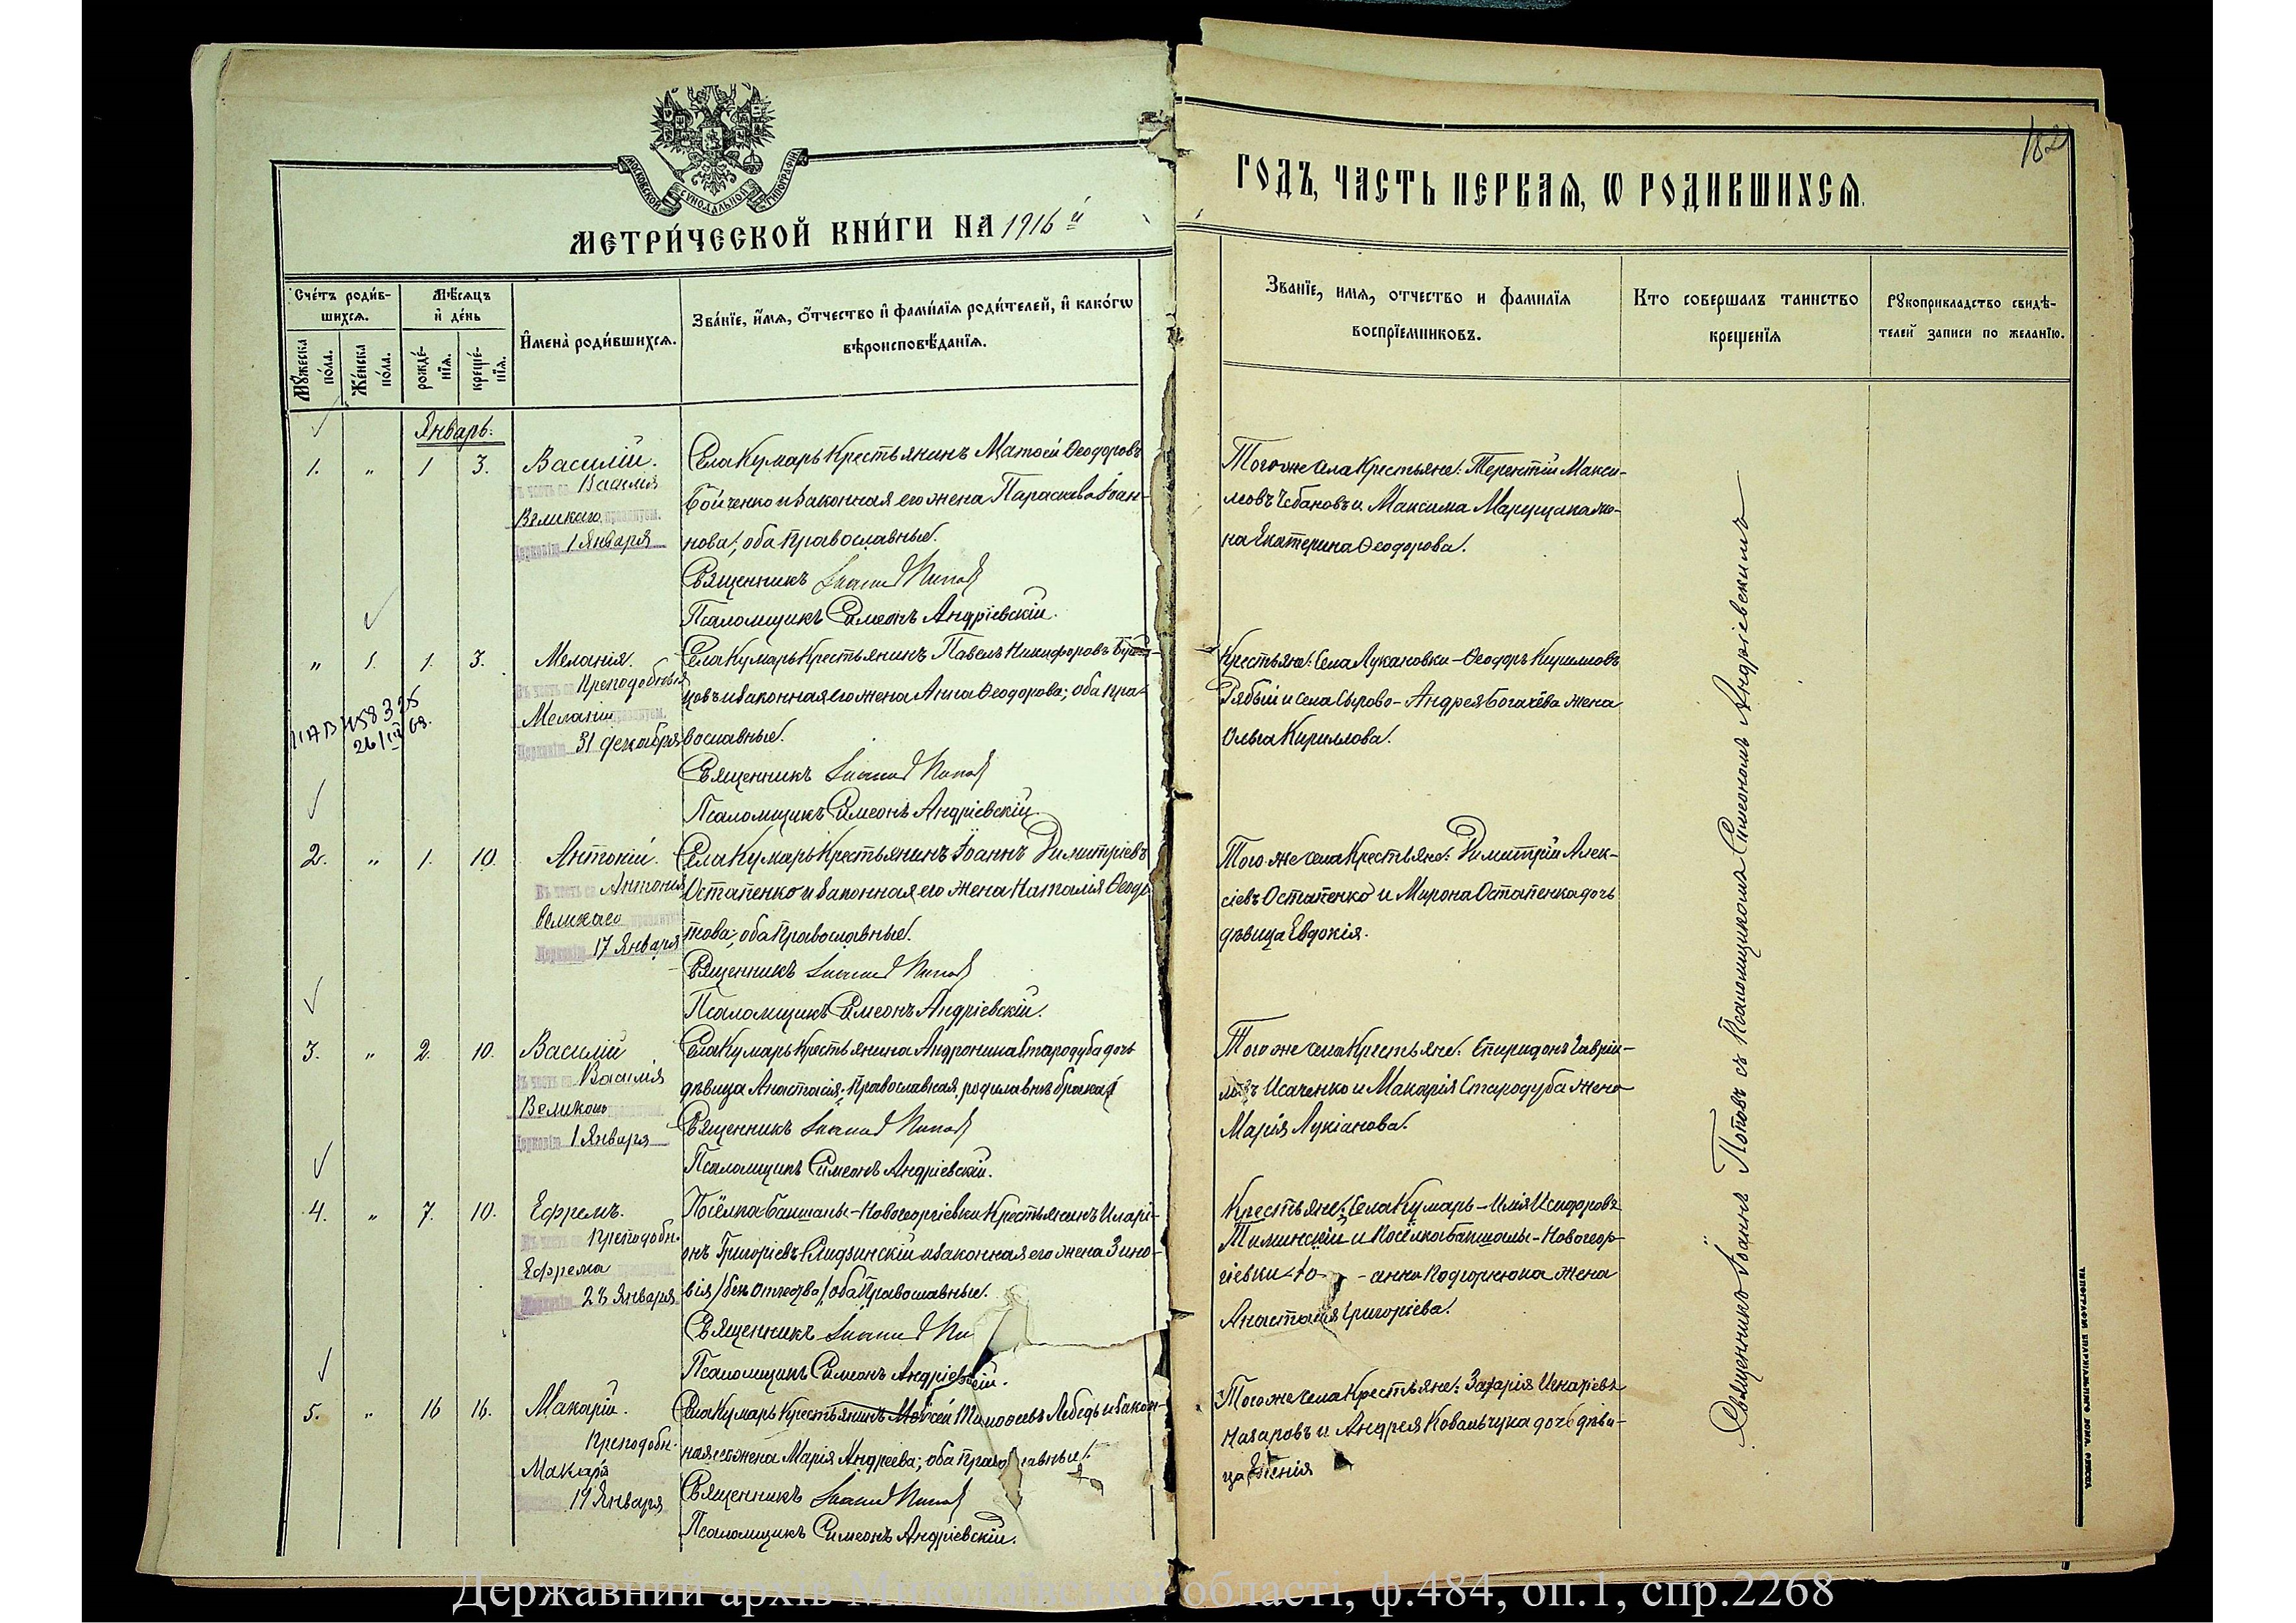 МОСКОВСКОЙ СѴНОДАЛЬНОЙ ТИПОГРАФІИ
МЕТРИ́ЧЕСКОЙ КНИ́ГИ НА 1916 й
ГОДЪ, ЧАСТЬ ПЕРВАЯ, Ѡ РОДИВШИХСЯ.
182
Сче́тъ роди́в-
шихся.
Мꙋжеска по́ла.
Же́нска по́ла.
Мѣ́сяцъ и де́нь
рожде́-нїя.
креще́-нїя.
И҆мена̀ роди́вшихся.
Зва́нїе, и҆́мя, ѻ҆́тчество и҆ фами́лїя роди́телей, и҆ како́гѡ
вѣроисповѣ́данїя.
Званїе, имя, отчество и фамилїя
воспрїемниковъ.
Кто совершалъ таинство
крещенїя
Рꙋкоприкладство свидѣ-
телей записи по желанїю.
Январь.
1. " 1 3. Василій.
Въ честь св. Василія
Великаго празднуем.
Церковію 1 Января
Села Кумарь Крестьянинъ Матѳей Ѳеодоровъ
Бойченко и законная его жена Параскева Іоан-
нова; оба Православные.
Священникъ Іоаннъ Поповъ
Псаломщикъ Симеонъ Андріевскій.
Того же села Крестьяне: Терентій Макси-
мовъ Чебановъ и Максима Марущака же-
на Екатерина Ѳеодорова.
" 1. 1. 3. Меланія.
Въ честь св. Преподобныя
Меланіи празднуем.
Церковію 31 декабря
26/III 68.
Села Кумарь Крестьянинъ Павелъ Никифоровъ
цовъ и законная его жена Анна Ѳеодорова; оба пра-
вославные.
Священникъ Іоаннъ Поповъ
Псаломщикъ Симеонъ Андріевскій.
Крестьяне: Села Лукановки – Ѳеодоръ Кирилловъ
Рябый и села Сырово – Андрея Богачёва жена
Ольга Кириллова.
2. " 1. 10. Антоній.
Въ честь св. Антонія
великаго празднуем.
Церковію 17 Января
Села Кумарь Крестьянинъ Іоаннъ Димитріевъ
Остапенко и законная его жена Наталія Ѳеодо-
това; оба Православные.
Священникъ Іоаннъ Поповъ
Псаломщикъ Симеонъ Андріевскій.
Того же села Крестьяне: Димитрій Алек-
сіевъ Остапенко и Мирона Остапенка дочь
дѣвица Евдокія.
3. " 2. 10. Василій
Въ честь св. Василія
Великаго празднуем.
Церковію 1 Января
Села Кумарь Крестьянина Андроника Стародуба дочь
дѣвица Анастасія, православная, родила внѣ брака
Священникъ Іоаннъ Поповъ
Псаломщикъ Симеонъ Андріевскій.
Того же села Крестьяне: Спиридонъ Гаврии-
ловъ Исаченко и Макарія Стародуба жена
Марія Лукіанова.
4. " 7. 10. Ефремъ.
Въ честь св. Преподобн.
Ефрема празднуем.
Церковію 28 Января
Посёлка Бакшалы-Новогеоргіевки Крестьянинъ Иларі-
онъ Григоріевъ Слидзинскій и законная его жена Зино-
вія /безъ отчества/ оба Православные.
Священникъ Іоаннъ По
Псаломщикъ Симеонъ Андріевскій.
Крестьяне: Села Кумарь – Илія Исидоровъ
Тиминскій и Посёлка Бакшалы-Новогеор-
гіевки – Іо – анна Подгорнюка жена
Анастасія Григоріева.
5. " 16 16. Макарій.
Преподобн.
Макарія
19 Января
Села Кумарь Крестьянинъ Моѵсей Тимоѳеевъ Лебедь и закон-
ная его жена Марія Андреева; оба православные.
Священникъ Іоаннъ Поповъ
Псаломщикъ Симеонъ Андріевскій.
Того же села Крестьяне: Захарія Игнатіевъ
Назаровъ и Андрея Ковальчука дочь дѣви-
ца
Священникъ Іоаннъ Поповъ съ Псаломщикомъ Симеономъ Андріевскимъ
ТИПОГРАФІИ ЕПАРХІАЛЬНАГО ДОМА. ОДЕССА.
Державний архів Миколаївської області, ф.484, оп.1, спр.2268